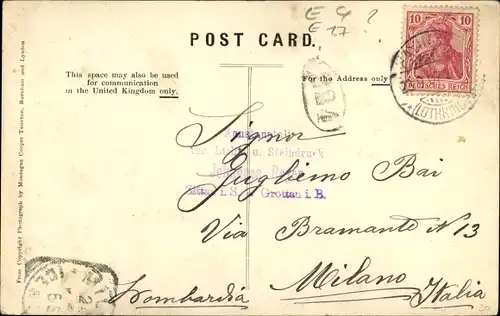 E 4 ?
E 17
POST CARD.
10 10
DEUTSCHES REICH
(LOTHR
This space may also be used
for communication
in the United Kingdom only.
For the Address only
Signor
für Licht- u. Steindruck
Guglielmo Bai
Zittau i. S. u. Grottau i. B.
Via Bramante N 13
Milano
Lombardia
Italia
From Copyright Photograph by Montague Cooper Taunton, Burnham and Lynton